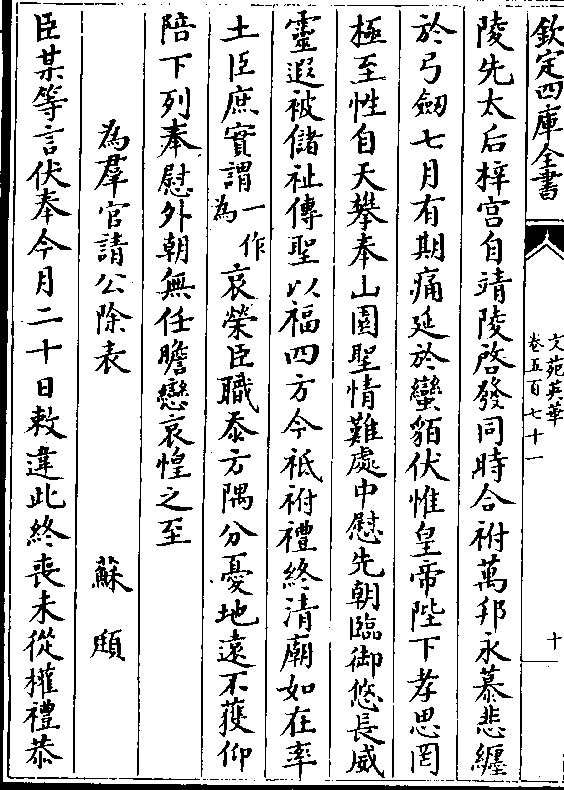 欽定四庫全書
文苑英華
卷五百七十一
十
陵先太后梓宫自靖陵啓發同時合祔萬邦永慕悲纏
於弓劒七月有期痛延於蠻貊伏惟皇帝陛下孝思罔
極至性自天攀奉山園聖情難處中慰先朝臨御悠長威
靈遐被儲祉傳聖以福四方今祗祔禮終清廟如在率
土臣庶實謂一作為哀榮臣職忝方隅分憂地遠不獲仰
陪下列奉慰外朝無任瞻戀哀惶之至
為羣官請公除表　蘇頲
臣某等言伏奉今月二十日敕違此終喪未從權禮恭